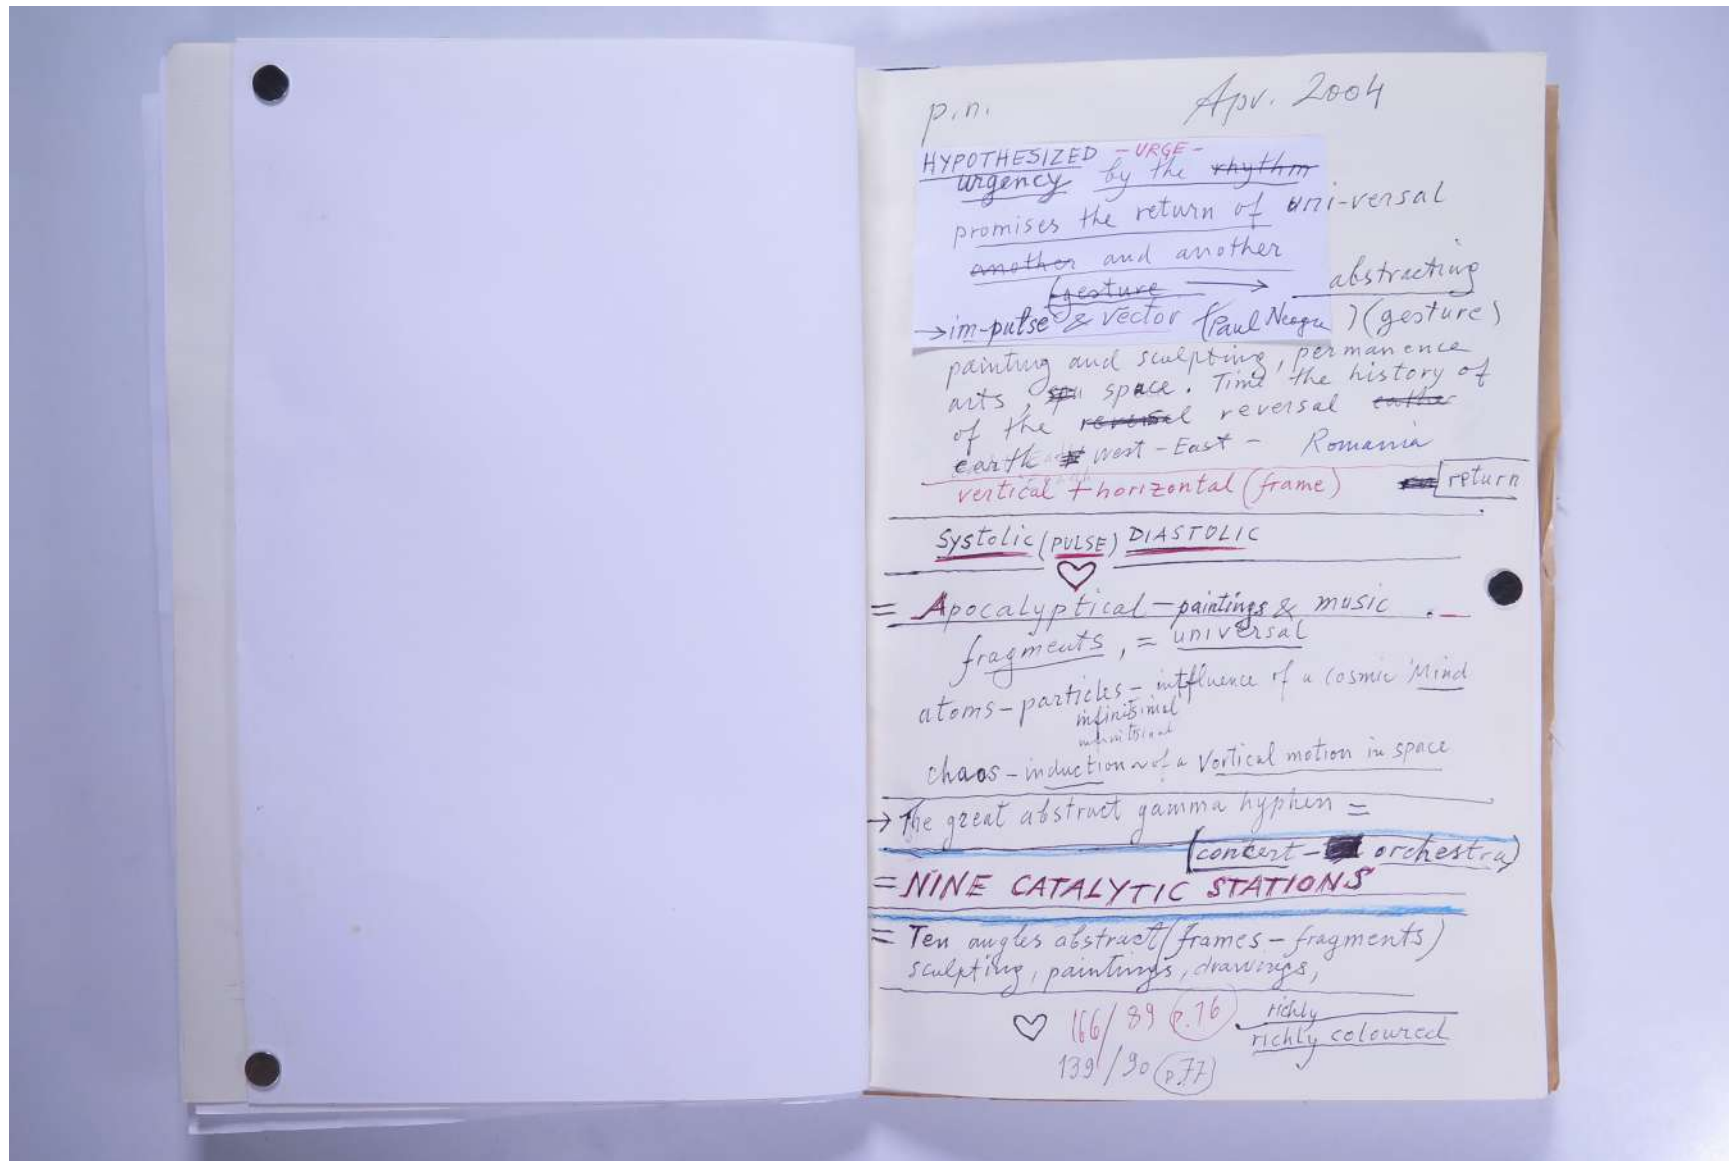 p.n. Apr. 2004
HYPOTHESIZED - URGE -
urgency by the rhythm
promises the return of uni-versal
another and another
(gesture → abstracting
→ im-pulse & vector (Paul Neagu) (gesture)
painting and sculpting, permanence
arts, space. Time the history of
of the reversal reversal
earth west - East - Romania
vertical + horizontal (frame) return
Systolic (PULSE) DIASTOLIC
= Apocalyptical - paintings & music .
fragments, = universal
atoms - particles - intfluence of a cosmic Mind
infinitsimal
chaos - induction of a Vortical motion in space
→ The great abstract gamma hyphen =
(concert - orchestra)
= NINE CATALYTIC STATIONS
= Ten angles abstract (frames - fragments)
sculpting, paintings, drawings,
♡ 166/89 p.76 richly
139/90 p.77 richly coloured